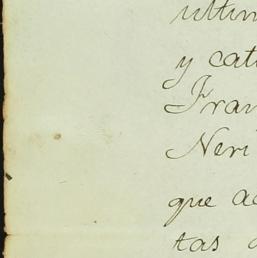 ultim
y cat
Fran
Neri
que ac
tas